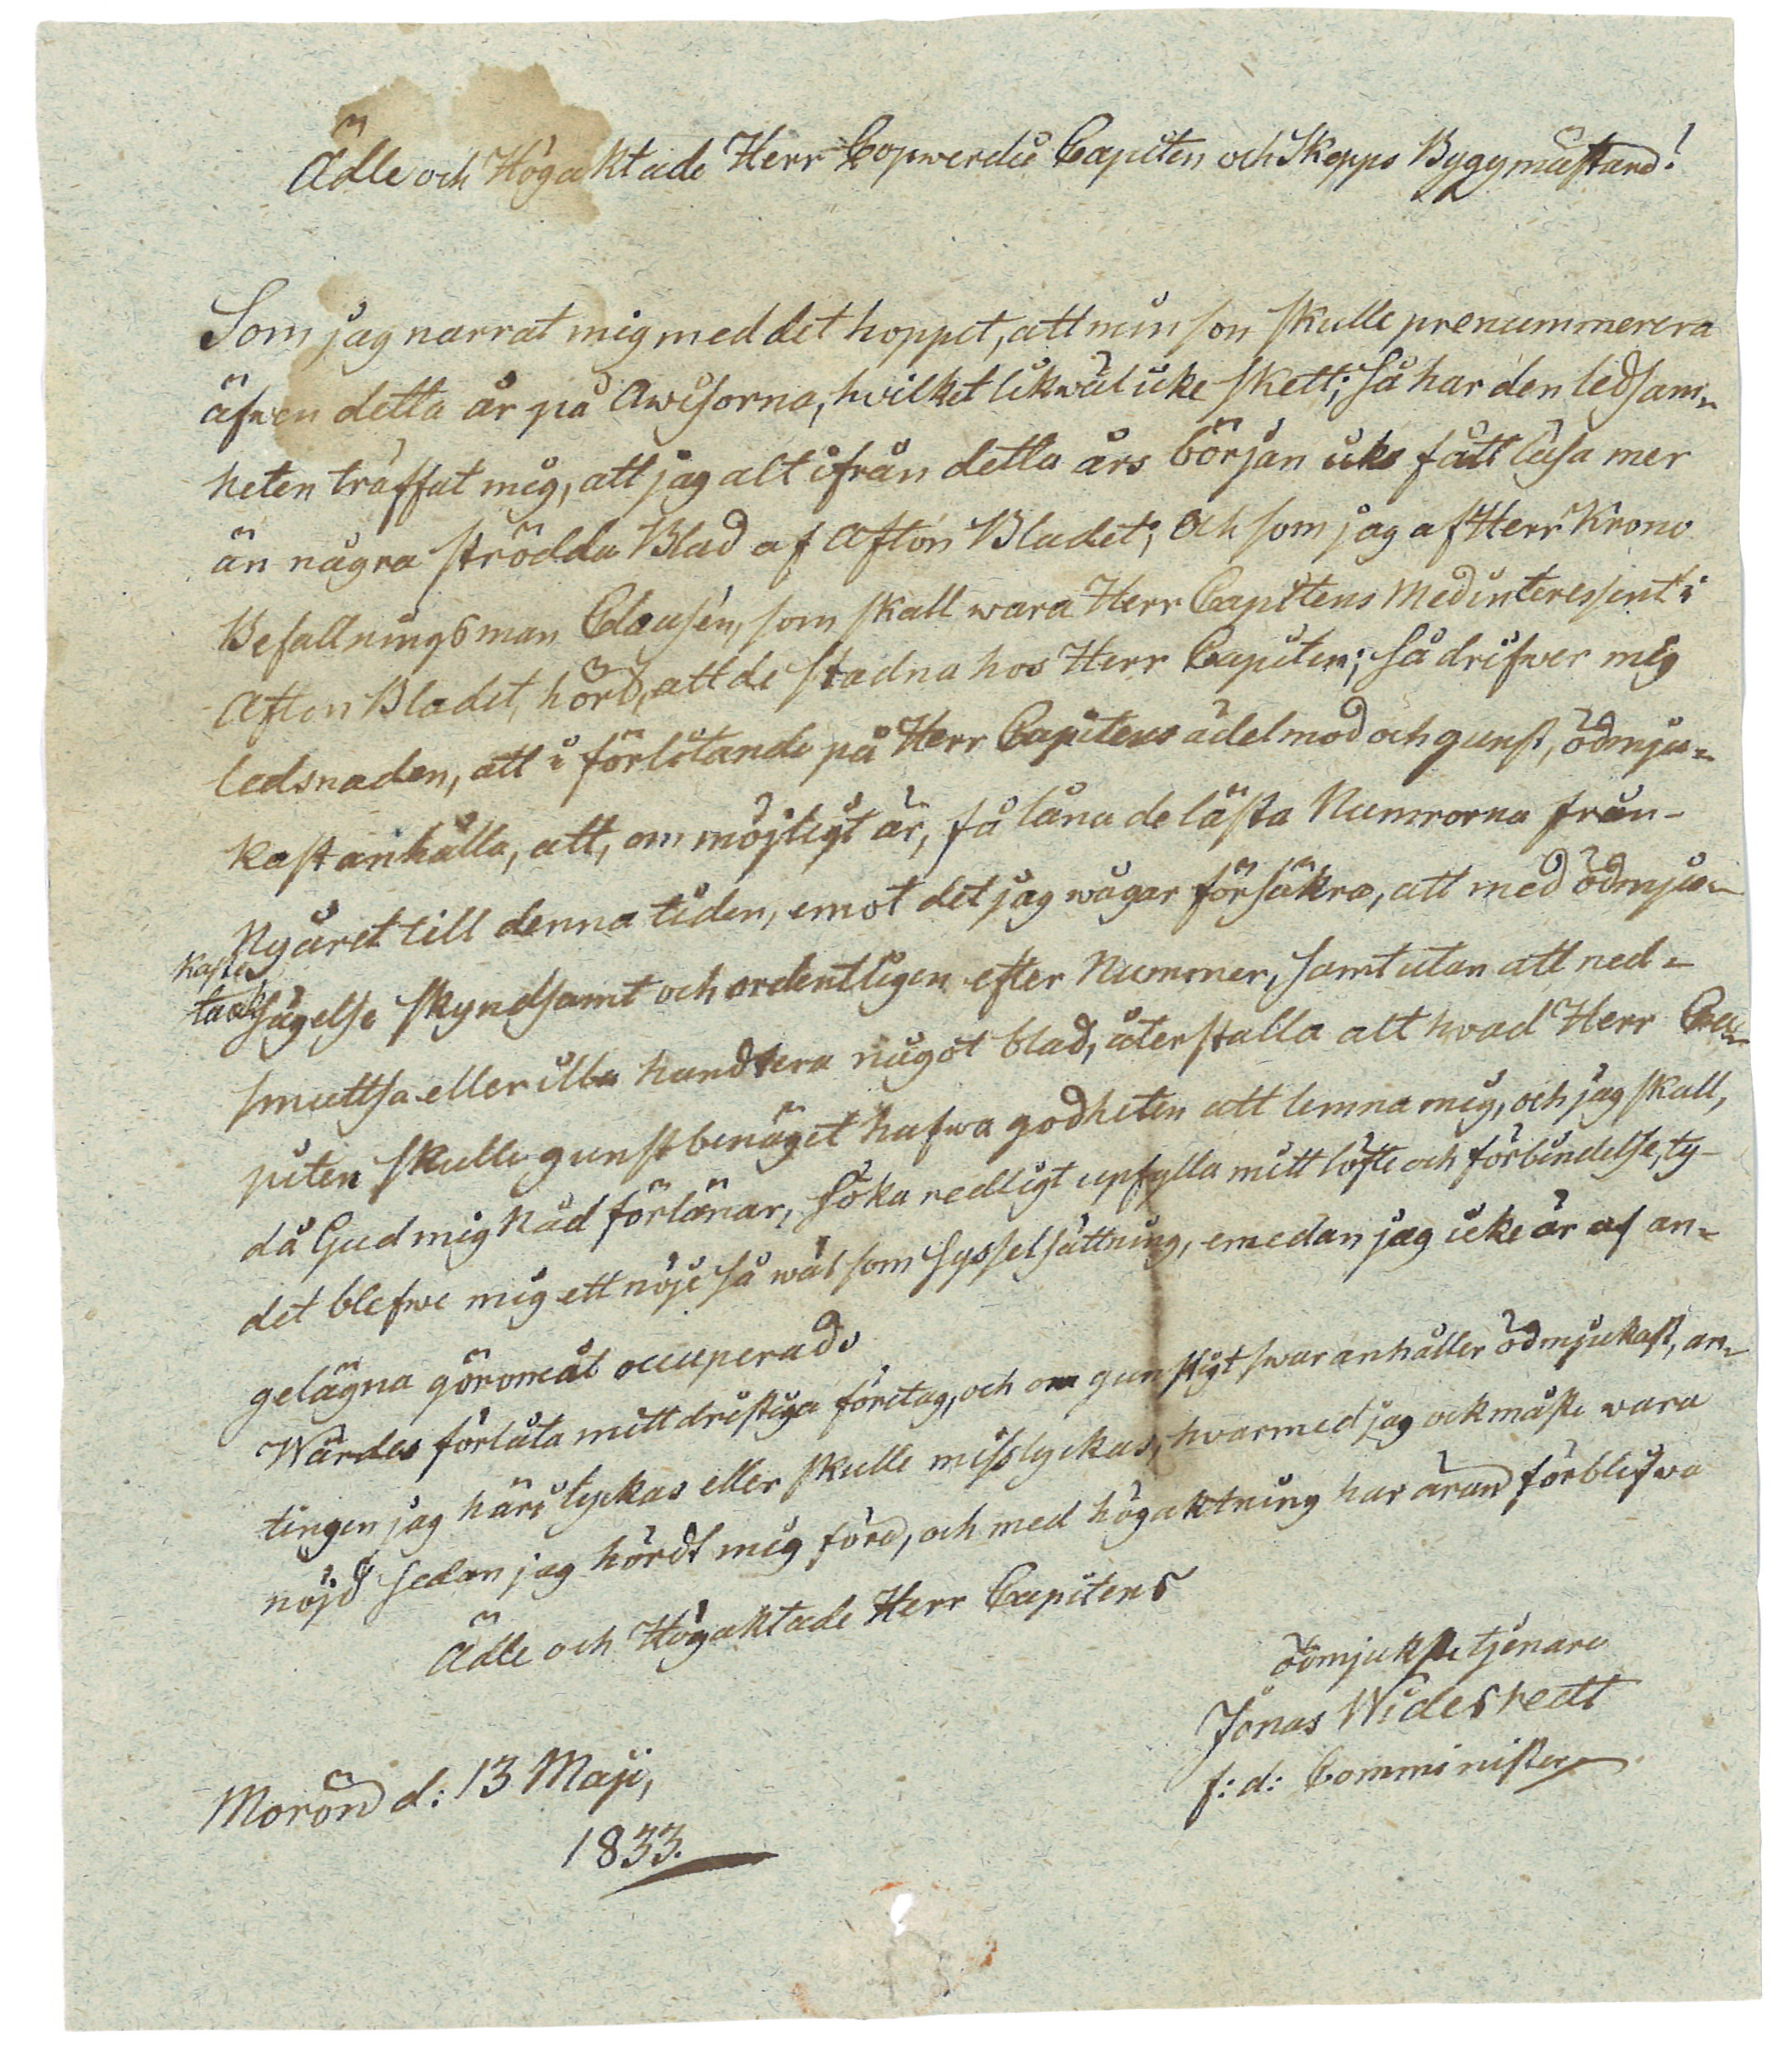 Ädle och Högaktade Herr Copwerdie Capiten och Skepps Byggmästare!
Som jag narrat mig med det hoppet, att min son skulle prenummerera
äfwen detta år på Awisorna, hvilket likwäl icke skett; så har den ledsam-
heten träffat mig, att jag alt ifrån detta års början icke fått läsa mer
än några strödda Blad af Afton Bladet; och som jag af Herr Krono
Befallningsman Clausén, som skall wara Herr Capitens Medinteressent i
Afton Bladet, hörd, att de stadna hos Herr Capiten; så drifwer mig
ledsnaden, att i förlitande på Herr Capitens ädelmod och gunst, ödmju-
kast anhålla, att, om möjligt är, få låna de lästa Numrorna från
Nyåret till denna tiden, emot det jag wågar försäkra, att med ödmju-
kaste
tacksägelse skyndsamt och ordentligen efter Nummer, samt utan att ned-
smuttsa eller illa handtera något blad, återställa alt hvad Herr Ca-
piten skulle gunstbenäget hafwa godheten att lemna mig, och jag skall,
då Gud mig Nåd förlänar, söka redligt upfylla mitt löfte och förbindelse, ty
det blefwe mig ett nöje så wäl som sysselsättning, emedan jag icke är af an-
gelägna göromål occuperad.
Wärdes förlåta mitt dristiga företag, och om gunstigt swar anhåller ödmjukast, an-
tingen jag häri lyckas eller skulle misslyckas, hvarmed jag ock måste wara
nöjd sedan jag hördt mig före, och med högaktning har äran förblifwa
Ädle och Högaktade Herr Capitens
ödmjukste tjenare
Jonas Widestedt
f: d: Comminister
Morön d: 13 Maji,
1833.